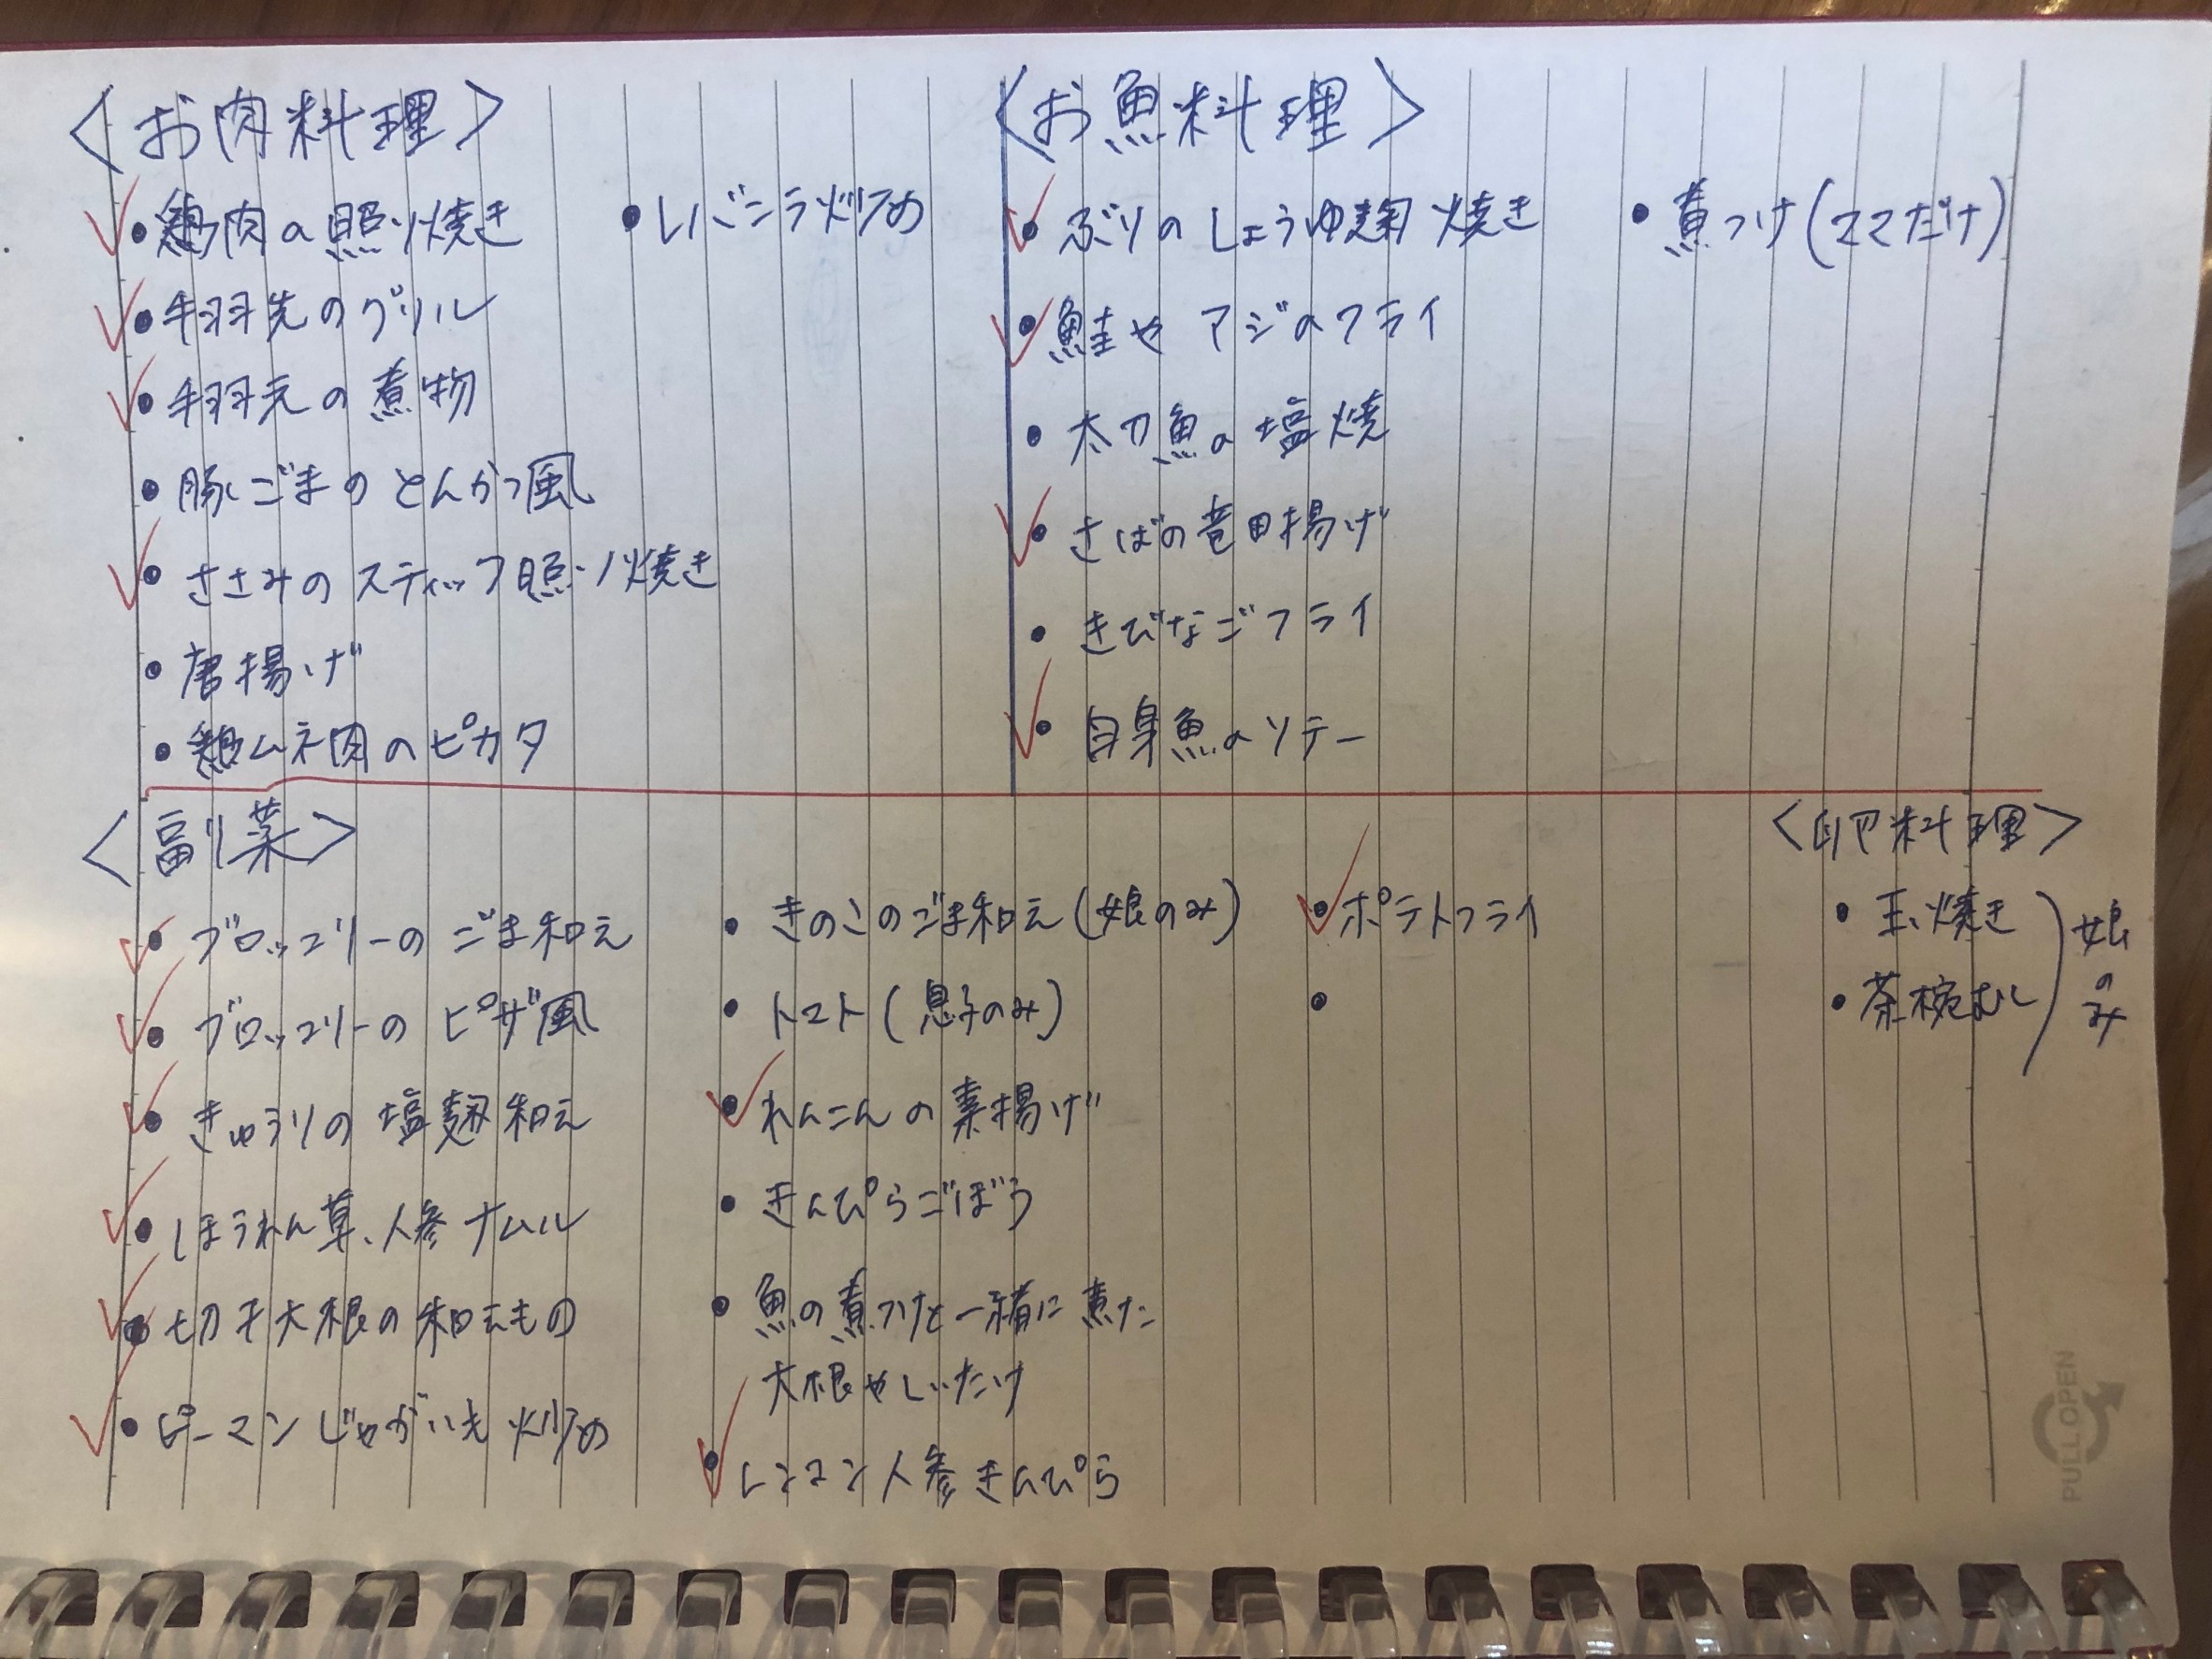 <お肉料理>
✓・鶏肉の照り焼き
✓・手羽先のグリル
✓・手羽元の煮物
・豚ごまのとんかつ風
✓・ささみのスティック照り焼き
・唐揚げ
・鶏ムネ肉のピカタ
・レバニラ炒め
<お魚料理>
✓・ぶりのしょうゆ麹焼き
✓・鮭やアジのフライ
・太刀魚の塩焼
✓・さばの竜田揚げ
・きびなごフライ
✓・白身魚のソテー
・煮つけ(ママだけ)
<副菜>
✓・ブロッコリーのごま和え
✓・ブロッコリーのピザ風
✓・きゅうりの塩麹和え
✓・ほうれん草、人参ナムル
✓・切干大根の和えもの
✓・ピーマンじゃがいも炒め
・きのこのごま和え(娘のみ)
・トマト(息子のみ)
✓・れんこんの素揚げ
・きんぴらごぼう
・魚の煮つけと一緒に煮た
大根やしいたけ
✓・レンコン人参きんぴら
✓・ポテトフライ
・
<卵料理>
・玉焼き
・茶椀むし
娘のみ
PULL OPEN